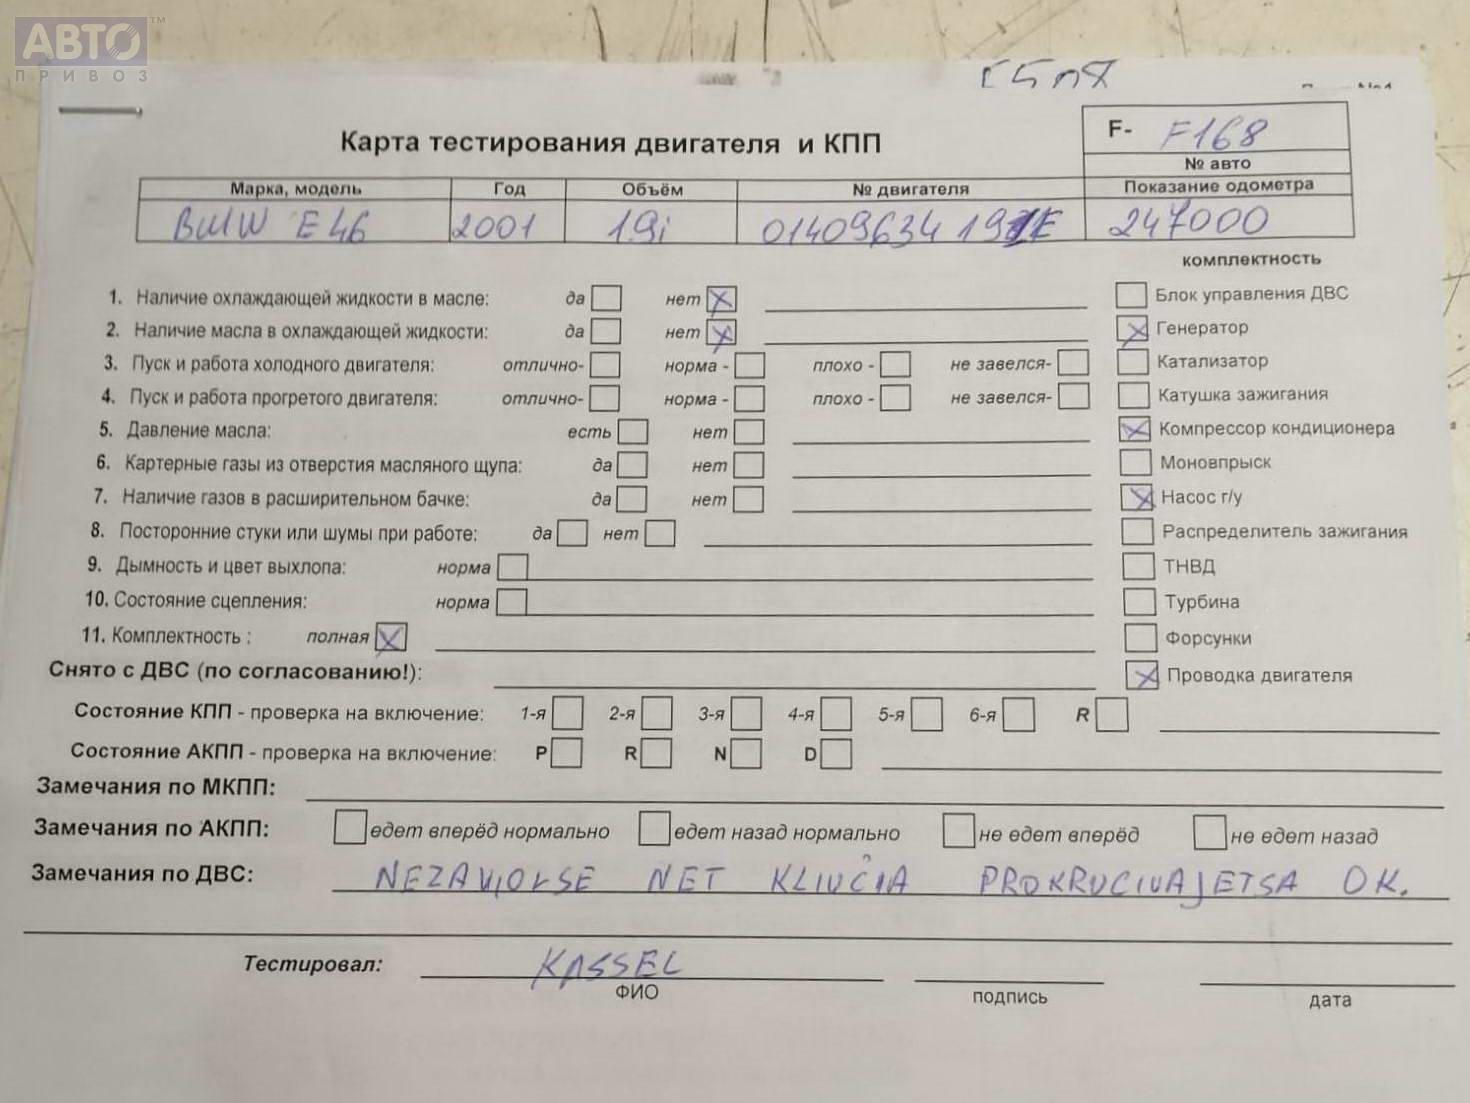 АВТО™
ПРИВОЗ
Карта тестирования двигателя и КПП
F- F168
№ авто
Марка, модель Год Объём № двигателя Показание одометра
BMW E46 2001 1.9i 01409634 247000
комплектность
1. Наличие охлаждающей жидкости в масле: да нет X Блок управления ДВС
2. Наличие масла в охлаждающей жидкости: да нет X X Генератор
3. Пуск и работа холодного двигателя: отлично- норма - плохо - не завелся- Катализатор
4. Пуск и работа прогретого двигателя: отлично- норма - плохо - не завелся- Катушка зажигания
5. Давление масла: есть нет X Компрессор кондиционера
6. Картерные газы из отверстия масляного щупа: да нет Моновпрыск
7. Наличие газов в расширительном бачке: да нет X Насос г/у
8. Посторонние стуки или шумы при работе: да нет Распределитель зажигания
9. Дымность и цвет выхлопа: норма ТНВД
10. Состояние сцепления: норма Турбина
11. Комплектность : полная X Форсунки
Снято с ДВС (по согласованию!): X Проводка двигателя
Состояние КПП - проверка на включение: 1-я 2-я 3-я 4-я 5-я 6-я R
Состояние АКПП - проверка на включение: P R N D
Замечания по МКПП:
Замечания по АКПП: едет вперёд нормально едет назад нормально не едет вперёд не едет назад
Замечания по ДВС: NET KLIUČIA PROKRUCIVAJETSA OK.
Тестировал: KASSEL
ФИО подпись дата